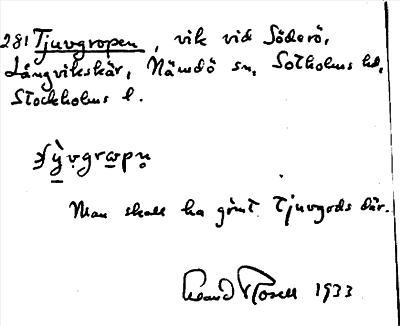 281 Tjuvgropen, vik vid Söderö,
Långvikskär, Nämdö sn, Sotholms hd,
Stockholms l.
Man skall ha gömt tjuvgods där.
Rosell 1933